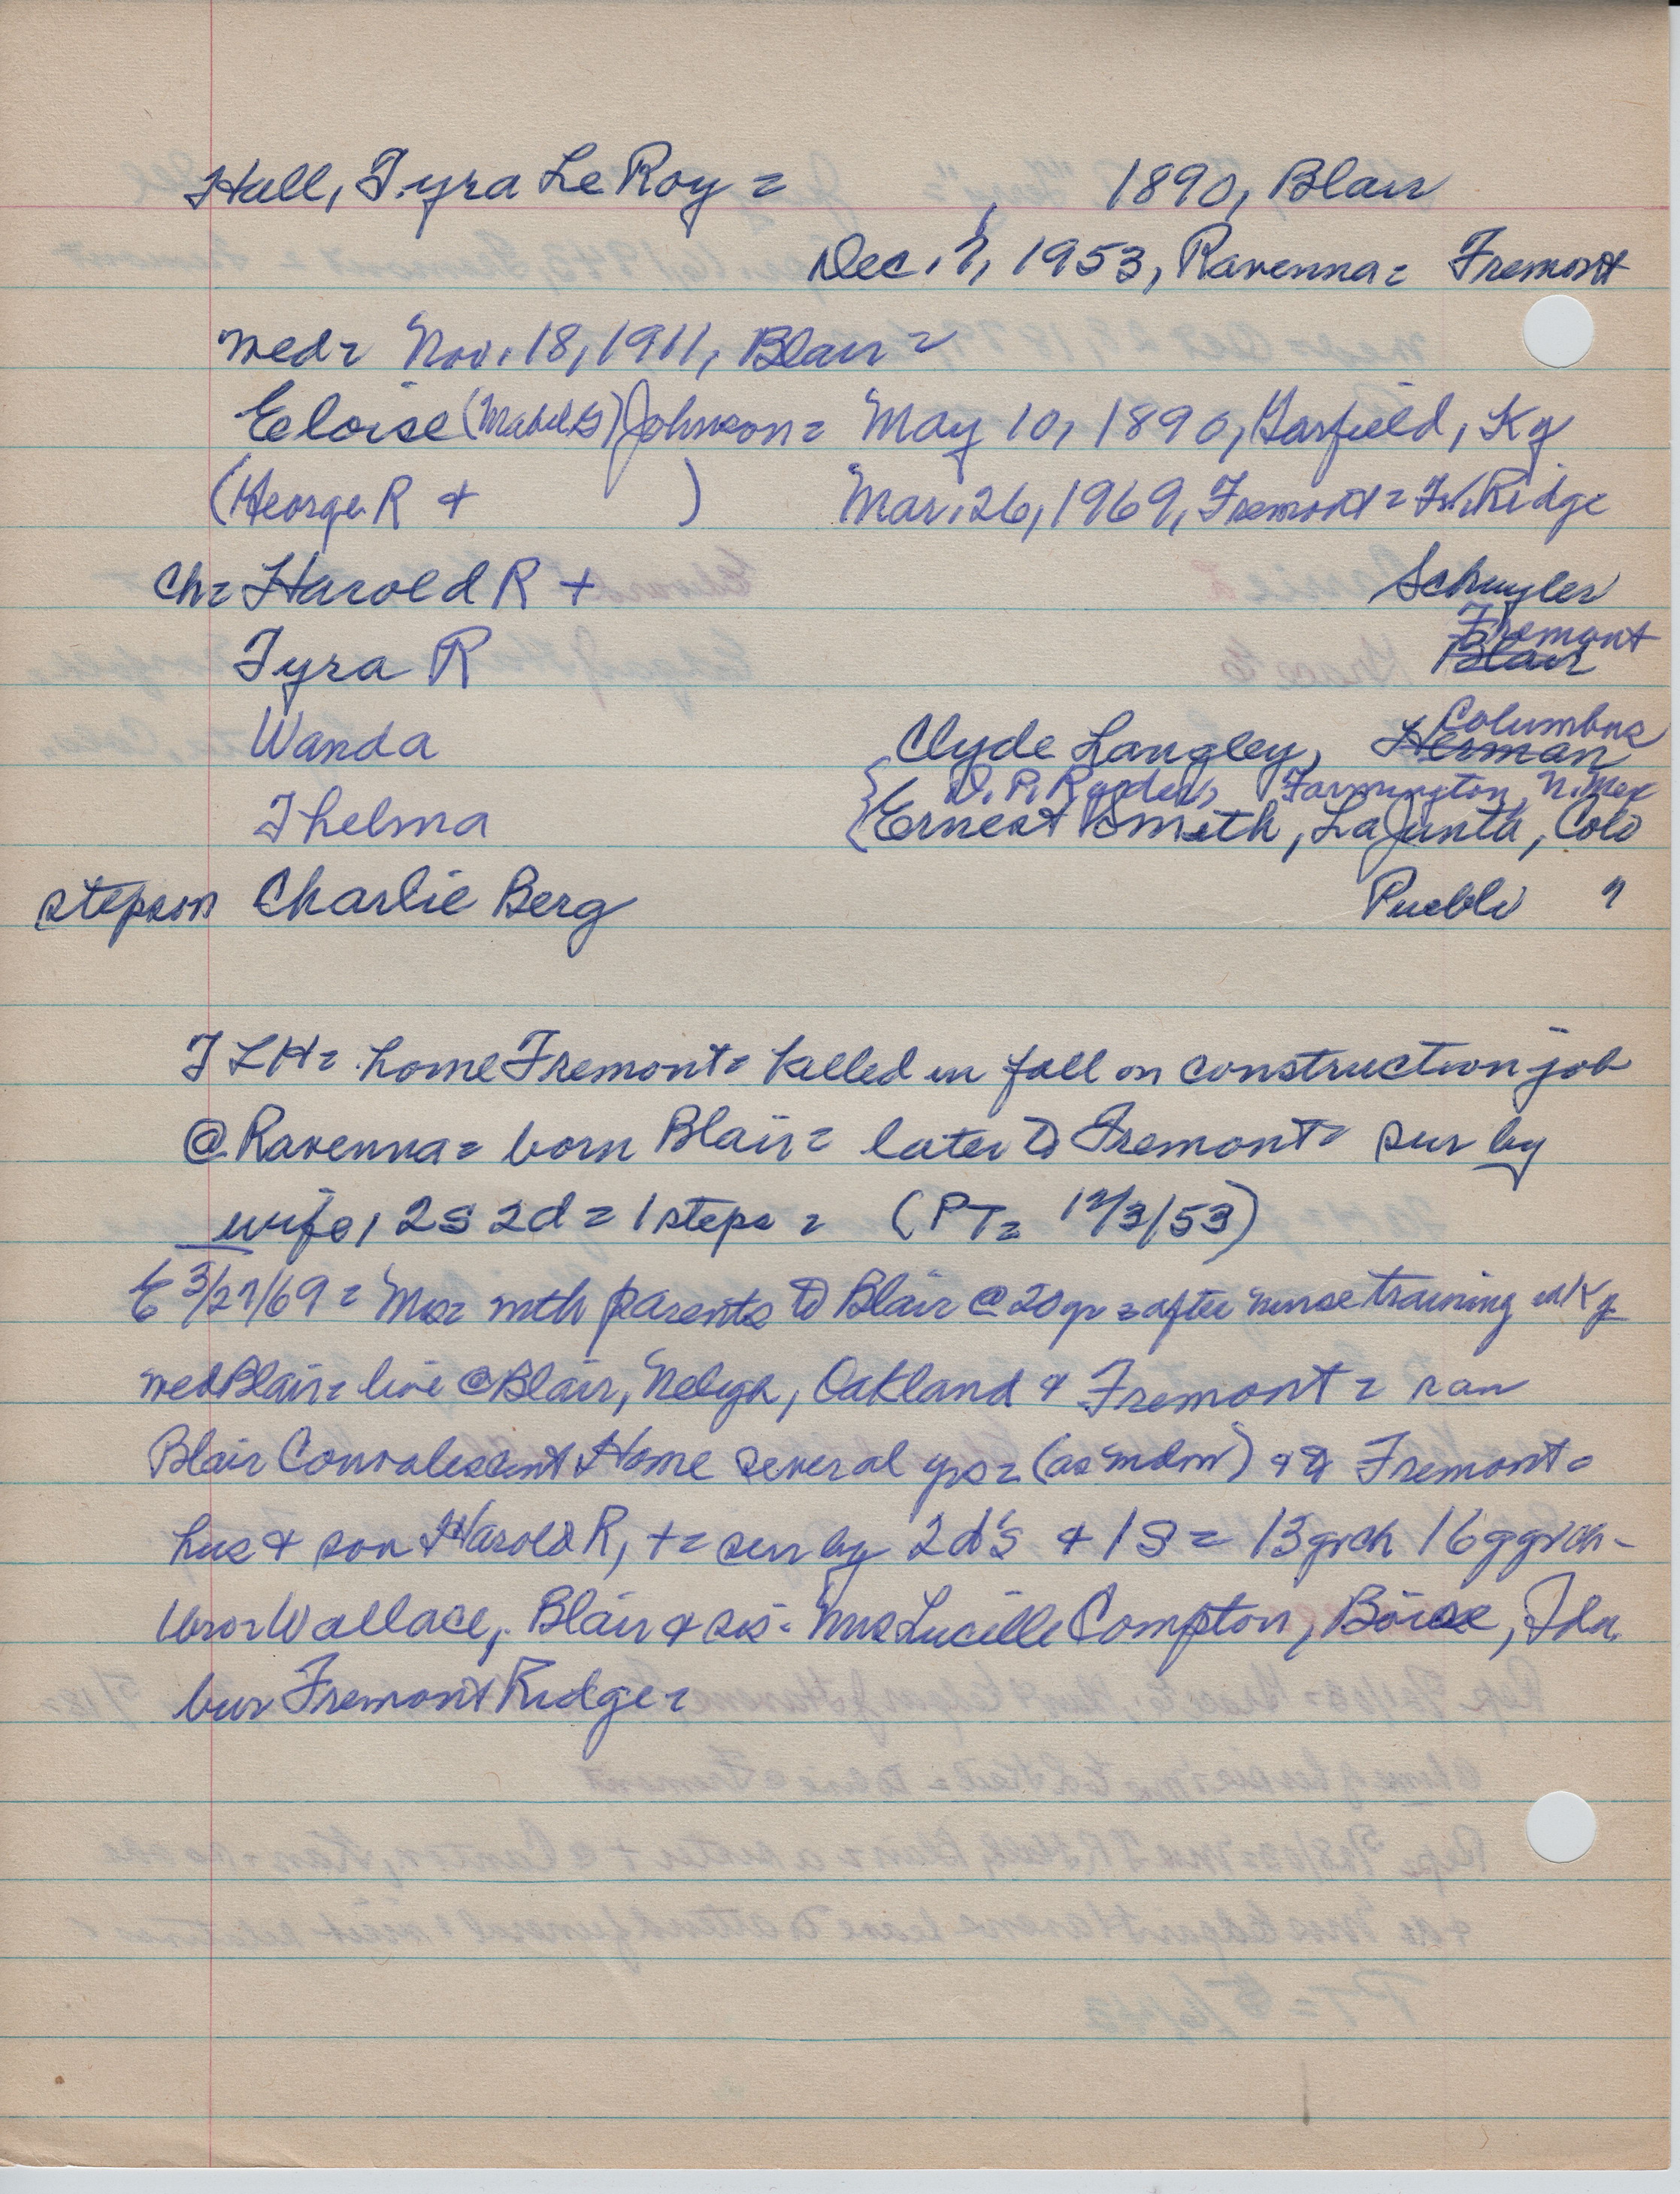 Hall, Tyra LeRoy = , 1890, Blair
Dec. 1, 1953, Ravenna = Fremont
wed = Nov. 18, 1911, Blair =
Eloise (Mabel G) Johnson = May 10, 1890, Garfield, Ky
(George R + ) Mar. 26, 1969, Fremont = Fr. Ridge
ch = Harold R + Schuyler
Fremont
Tyra R Blair
Columbus
Wanda Clyde Langley, Herman
D. P. Farmington, N. Mex
Thelma Ernest Smith, La Junta, Colo
stepson Charlie Berg Pueblo "
TLH = home Fremont = killed in fall on construction job
@ Ravenna = born Blair = later to Fremont = sur by
wife, 2s 2d = 1 steps = (PT = 12/3/53)
E 3/27/69 = Mrs = with parents to Blair @ 20 yr = after nurse training in Ky
wed Blair = live @ Blair, Neligh, Oakland & Fremont = ran
Blair Convalescent Home several yrs = (as mdm) & @ Fremont =
hus & son Harold R, + = sur by 2 d's & 1 S = 13 grch 16 ggrch -
bro = Wallace, Blair & sis - Mrs Lucille Compton, Boise, Ida
bur Fremont Ridge =